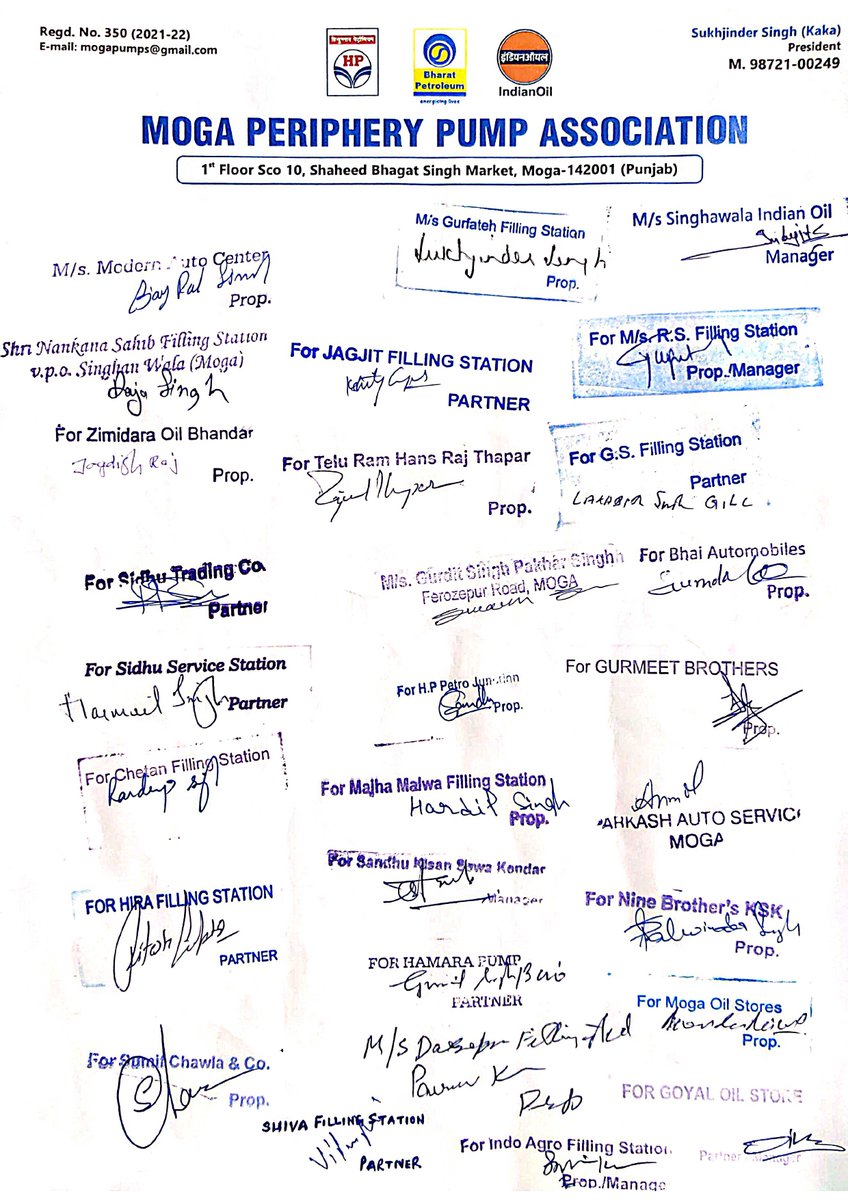 Regd. No. 350 (2021-22)
E-mail: mogapumps@gmail.com
हिन्दुस्तान पेट्रोलियम
HP
Bharat
Petroleum
energizing lives
इंडियनऑयल
IndianOil
Sukhjinder Singh (Kaka)
President
M. 98721-00249
MOGA PERIPHERY PUMP ASSOCIATION
1st Floor Sco 10, Shaheed Bhagat Singh Market, Moga-142001 (Punjab)
M/s. Modern Auto Center
Prop.
M/s Gurfateh Filling Station
Sukhjinder Singh
Prop.
M/s Singhawala Indian Oil
Manager
Shri Nankana Sahib Filling Station
v.p.o. Singhan Wala (Moga)
Raja Singh
For JAGJIT FILLING STATION
PARTNER
For M/s. R.S. Filling Station
Prop./Manager
For Zimidara Oil Bhandar
Jagdish Raj
Prop.
For Telu Ram Hans Raj Thapar
Prop.
For G.S. Filling Station
Partner
Singh GILL
For Sidhu Trading Co.
Partner
M/s. Gurdit Singh Pakhar Singhh
Ferozepur Road, MOGA
For Bhai Automobiles
Prop.
For Sidhu Service Station
Singh
Partner
For H.P Petro Junction
Prop.
For GURMEET BROTHERS
Prop.
For Chetan Filling Station
For Majha Malwa Filling Station
Hardip Singh
Prop.
Anmol
ARKASH AUTO SERVIC
MOGA
For HIRA FILLING STATION
PARTNER
For Sandhu Kisan Sewa Kendar
Manager
For Nine Brother's KSK
Balwinder Singh
Prop.
FOR HAMARA PUMP
PARTNER
For Moga Oil Stores
Prop.
For Sumit Chawla & Co.
Prop.
M/S Filling
FOR GOYAL OIL STORE
SHIVA FILLING STATION
PARTNER
For Indo Agro Filling Station
Prop./Manage
Partner Manager